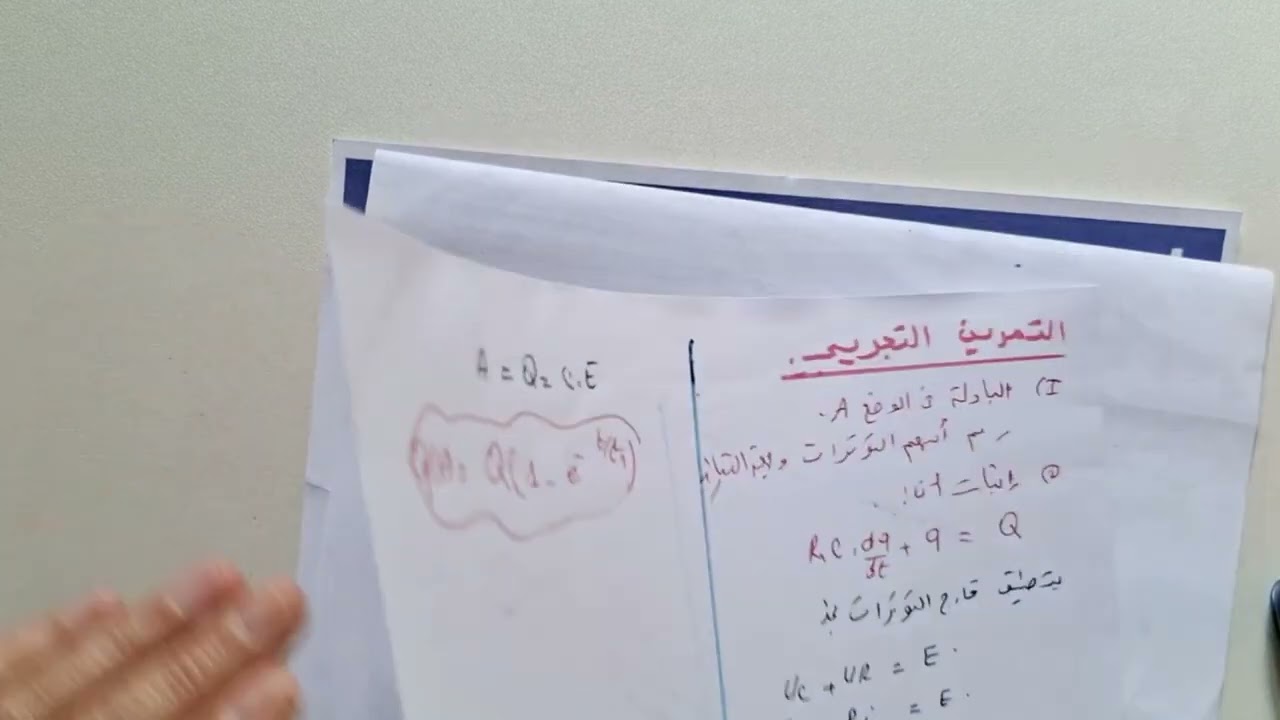 التمرين التجريبي.
I) البادلة في الوضع A.
رسم أسهم التوترات وجهة التيار
② إثبات أن:
R₁C.dq/dt + q = Q
بتطبيق قانون التوترات نجد
Uc + UR = E.
= E.
A = Q = C.E
= Q(1 - e